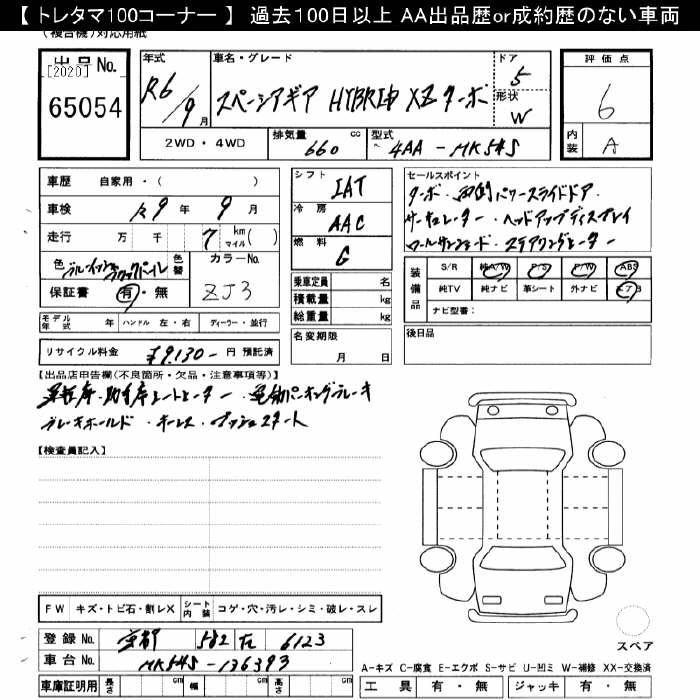 【 トレタマ100コーナー 】 過去100日以上 AA出品歴or成約歴のない車両
(複合機)対応用紙
出品No.
[2020]
65054
年式
R6/9月
車名・グレード
スペーシアギア HYBRID XZ ターボ
ドア
5
形状
W
評価点
6
内装
A
2WD・4WD
排気量
660
cc
型式
4AA-MK54S
車歴 自家用・( )
車検 R9年9月
走行 万 千 7 km マイル( )
色
色替
カラーNo.
ZJ3
保証書 有・無
シフト
IAT
冷房
AAC
燃料
G
乗車定員 名
積載量 kg
総重量 kg
名変期限
月 日
セールスポイント
ターボ・両側パワースライドドア・
サーキュレーター・ヘッドアップディスプレイ
ロールサンシェード・ステアリングヒーター
装備品
S/R 純A/W P/S P/W ABS
純TV 純ナビ 革シート 外ナビ エアB
ナビ型番:
モデル年式 年 ハンドル 左・右 ディーラー・並行
リサイクル料金 ¥9,130- 円 預託済
後日品
【出品店申告欄(不良箇所・欠品・注意事項等)】
運転席・助手席シートヒーター・電動パーキングブレーキ
ブレーキホールド・キーレス・プッシュスタート
【検査員記入】
FW キズ・トビ石・割レX シート内装 コゲ・穴・汚レ・シミ・破レ・スレ
スペア
登録No. 京都 582 た 6123
車台No. MK54S-136393
A-キズ C-腐食 E-エクボ S-サビ U-凹ミ W-補修 XX-交換済
車庫証明用 長さ cm 幅 cm 高さ cm
工具 有・無 ジャッキ 有・無